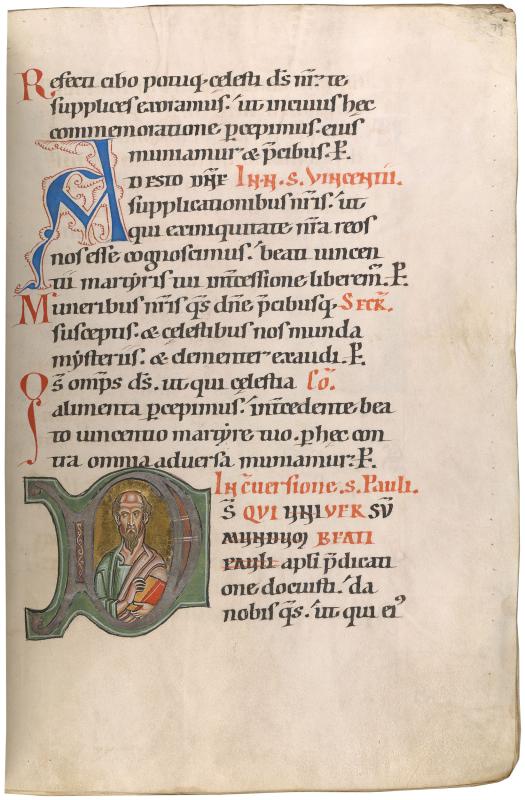 Refecti cibo potuq; cęlesti ds̄ nr̄ te
supplices exoramus. ut in cuius hec
commemoratione p̄cepimus. eius
muniamur & p̄cibus. P̄.
ADESTO DN̄E IN N. S. VINCENTII.
supplicationibus nr̄is. ut
qui ex iniquitate nr̄a reos
nos esse cognoscimus. beati uincen
tii martyris tui int̄cessione liberem̄. P̄.
Muneribus nr̄is q̄s dn̄e p̄cibusq; SECR̄.
susceptis. & cęlestibus nos munda
mysteriis. & clementer exaudi. P̄.
Q̄s omp̄s ds̄. ut qui cęlestia Cō.
alimenta p̄cepimus. int̄cedente bea
to uincentio martyre tuo. p hec con
tra omnia aduersa muniamur. P̄.
In c̄uersione. s. Pauli.
DS̄ QUI UNIVERSŪ
MUNDUM BEATI
PAULI apl̄i p̄dicati
one docuisti. da
nobis q̄s. ut qui ei᾽